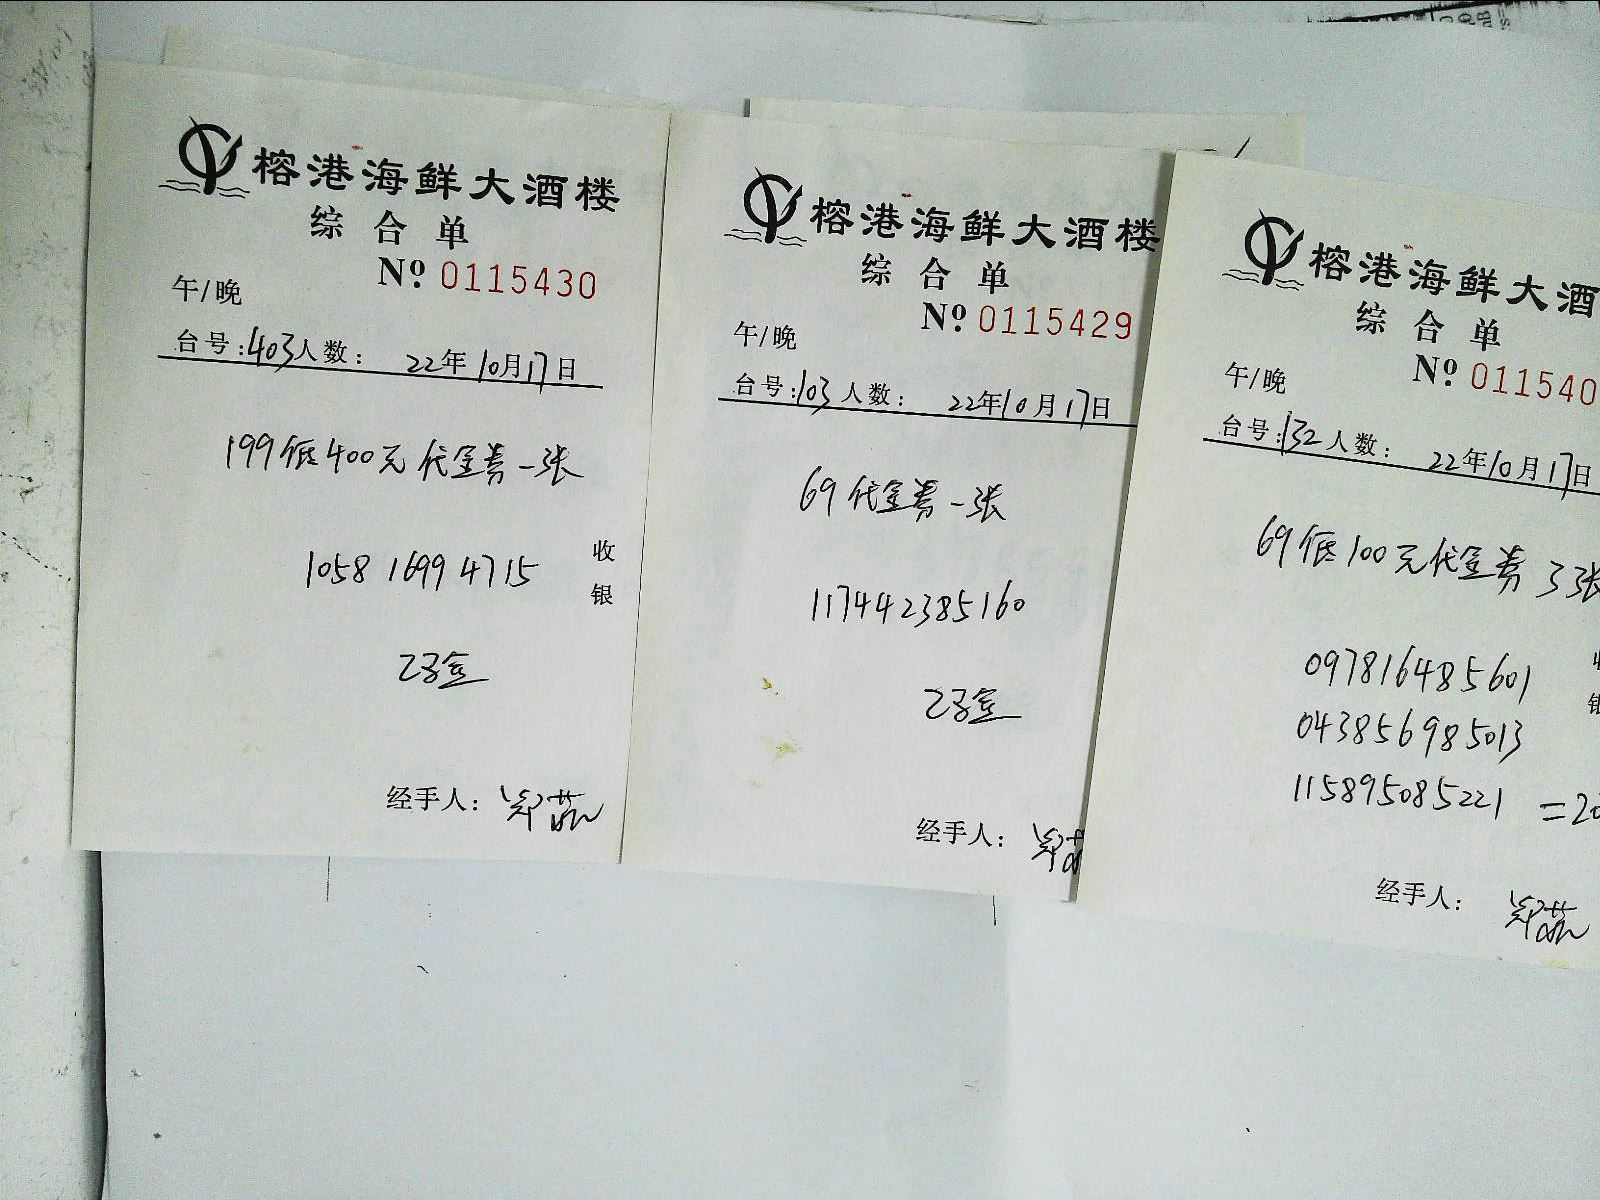 榕港海鲜大酒楼
综合单
№ 0115430
午/晚
台号:403人数: 22年10月17日
199低400元代金券一张
1058 1699 4715
收银
经手人:
榕港海鲜大酒楼
综合单
№ 0115429
午/晚
台号:103人数: 22年10月17日
69代金券一张
117442385160
经手人:
榕港海鲜大酒
综合单
№ 011540
午/晚
台号:132人数: 22年10月17日
69低100元代金券3张
097816485601
043856985013
115895085221 =20
经手人: